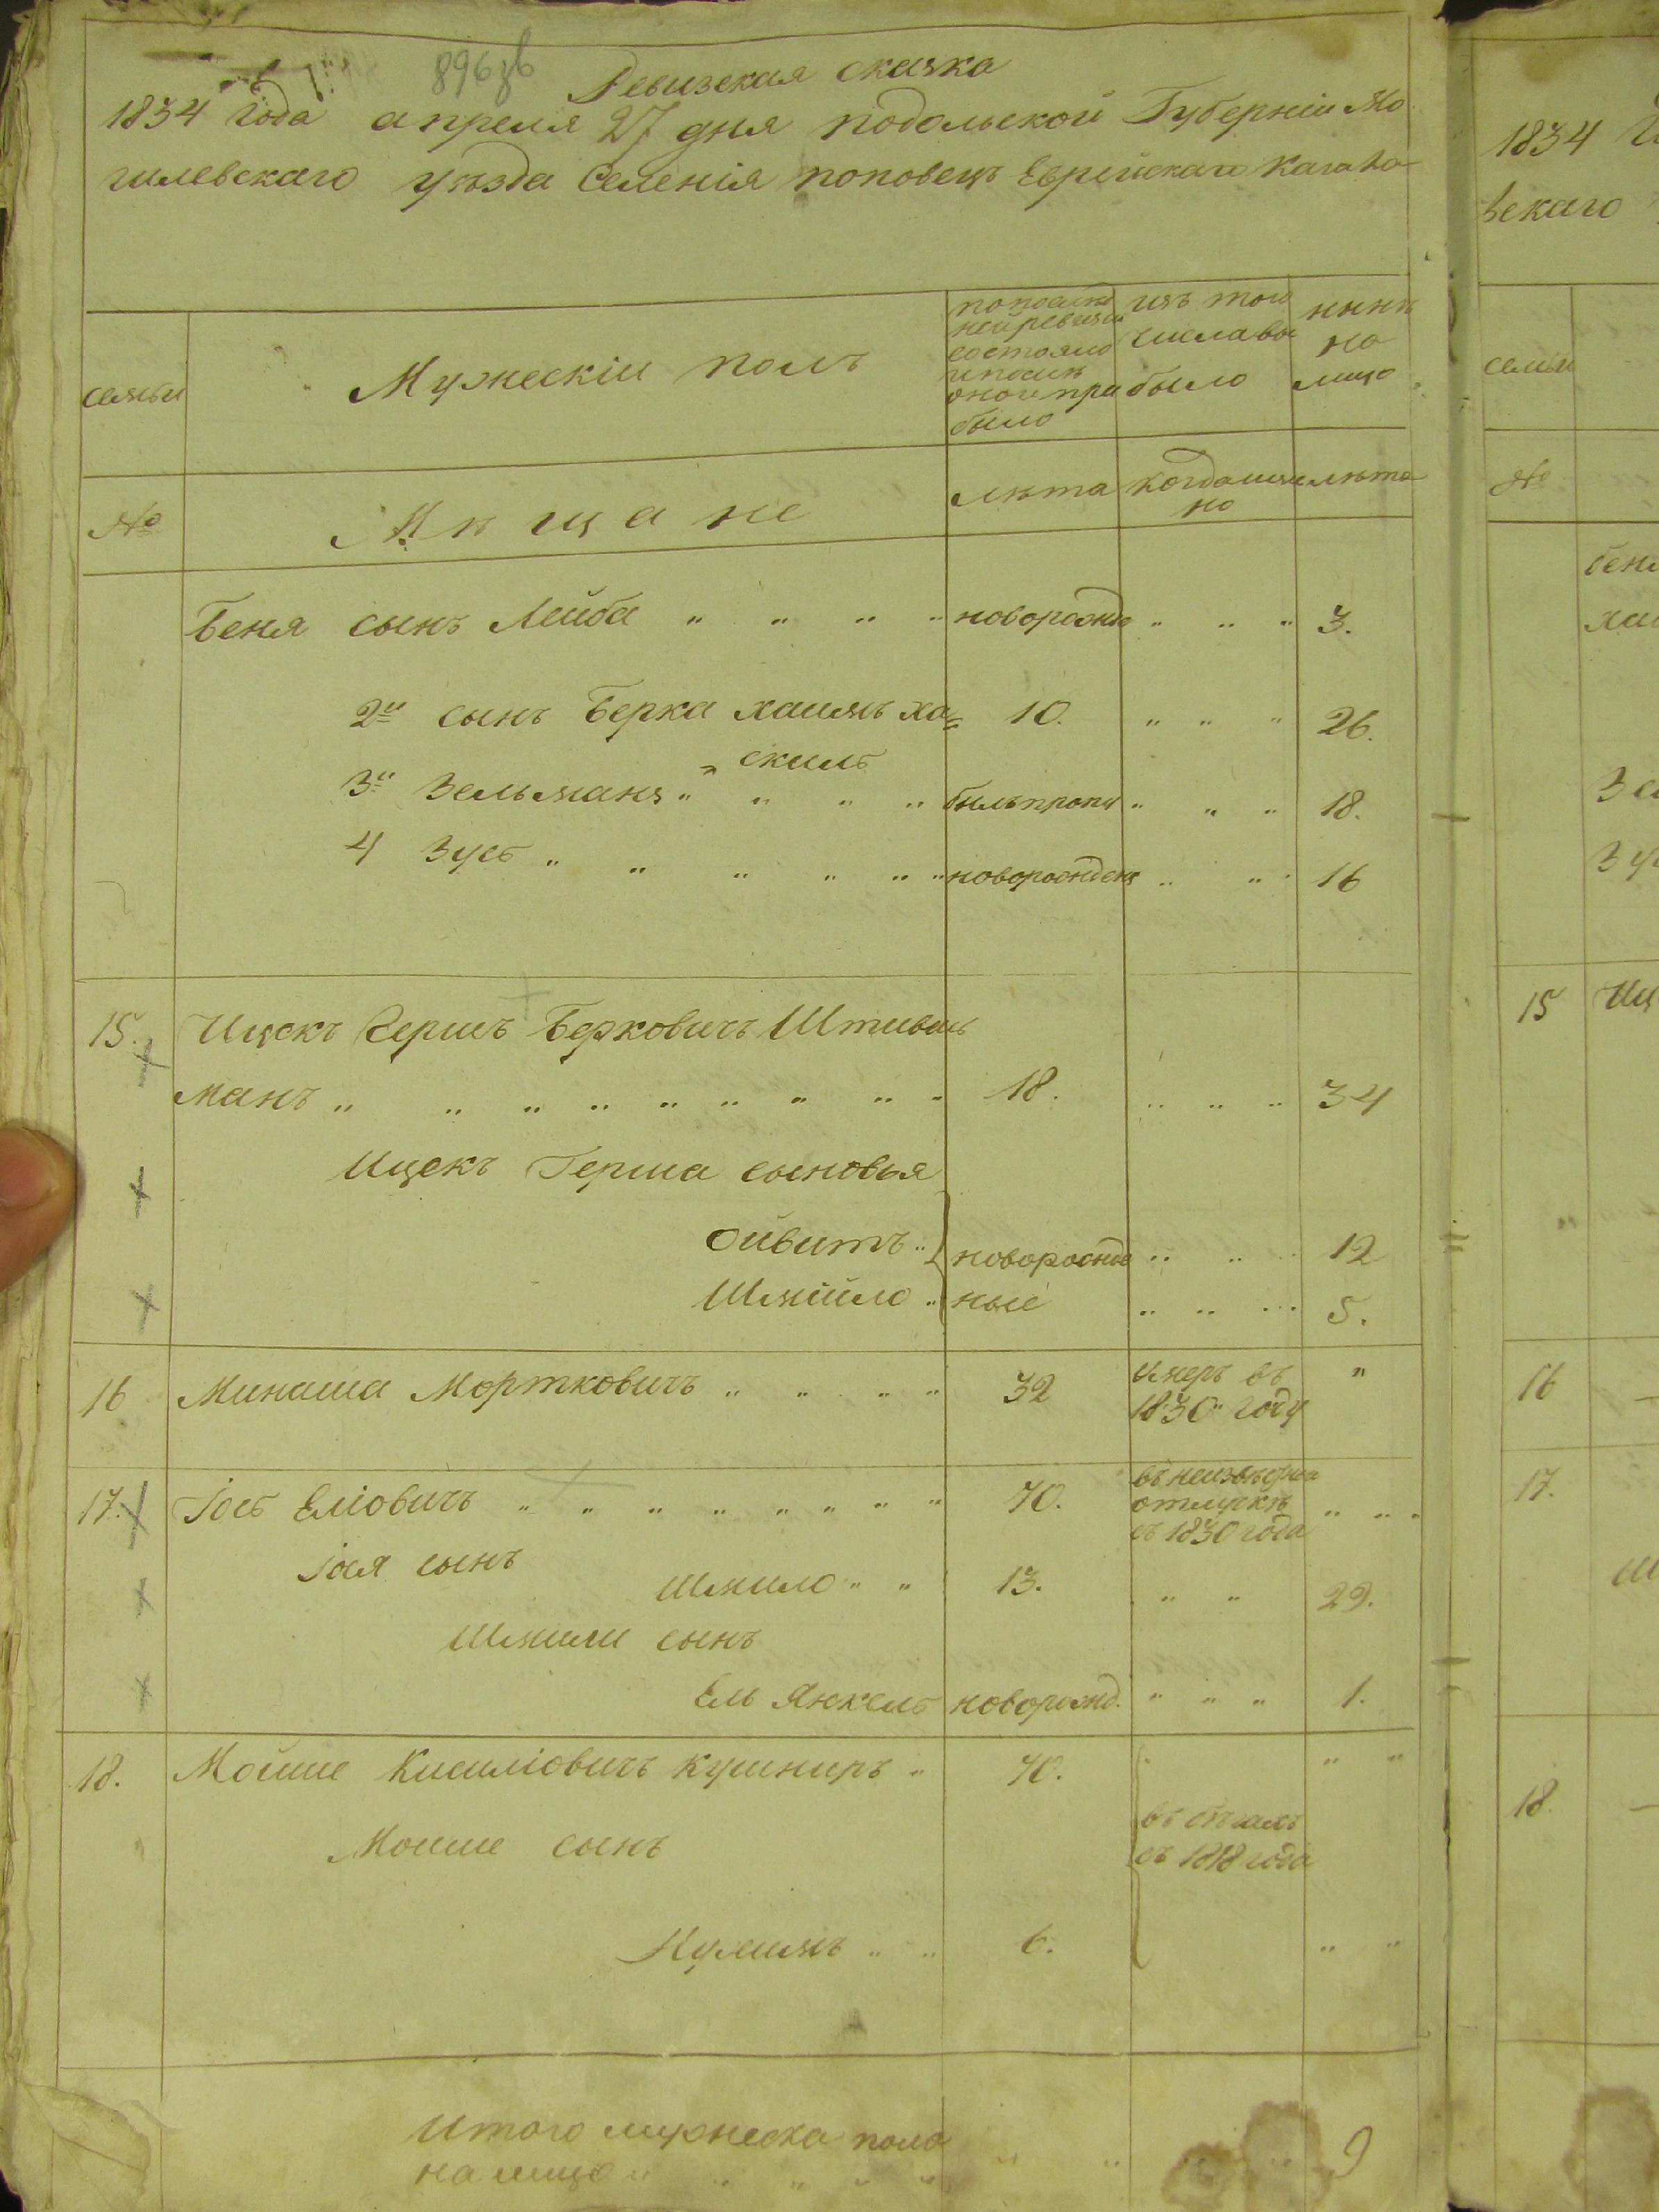 896 об
Ревизская сказка
1834 года апреля 27 дня подольской Губерніи Мо
гилевскаго уѣзда Селенія поповецъ Еврейскаго Кагала
семьи
Мужескіи полъ
по послед
ней ревизіи
состояло
и после
оной при
было
изъ того
числа вы
было
нынѣ
на
лицо
№
Мѣщане
лѣта
когда имян
но
лѣта
Беня сынъ Лейба " " " " новорожде " " " 3.
2й сынъ Берка хаимъ ха= 10. " " " 26.
скиль
3й Зельманъ " " " " былъ проп " " " 18.
4 Зусь " " " " " " новорожденъ " " " 16
15. Ицекъ Гершъ Берковичъ Штивель
манъ " " " " " " " " " 18. " " " 34
Ицекъ Герша сыновья
Ойвитъ " новорожде " " " 12
Шмійло " ные " " " 5.
16 Минаша Мортковичъ " " " " 32 Умеръ въ "
1830 году
17. Іось Еліовичъ " " " " " " " " 40. въ неизвѣстной
отлучкѣ " " "
съ 1830 года
Іося сынъ
Шмило " " 13. " " 29.
Шмили сынъ
Ель Янкель новорожд. " " " 1.
18. Мойше Кисиліовичъ Кушниръ " 40. " "
въ бѣгахъ
съ 1818 года
Мошие сынъ
6. " "
Итого мужеска пола
на лицо " " " " " " " " " 9
1834
вскаго
семьи
№
15 Иц
16
17.
18